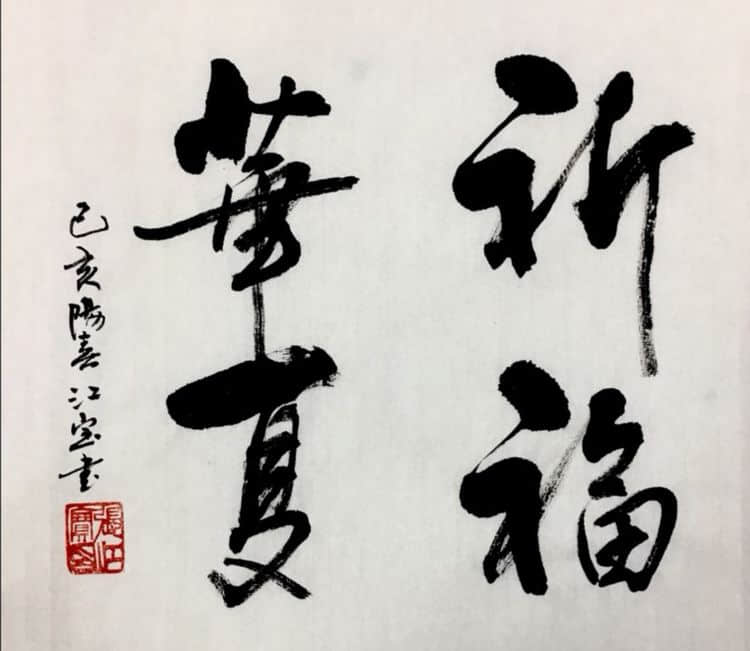 祈福
華夏
己亥陽春江宝书